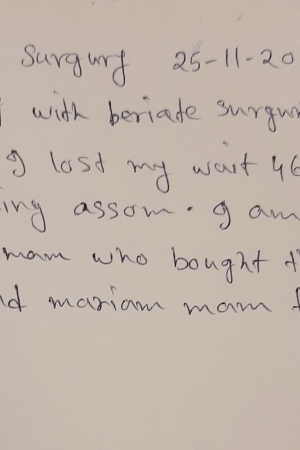 Surgury 25-11-20
with beriate surgur
I lost my wait 46
ing assom. I am
mam who bought t
d mariam mam